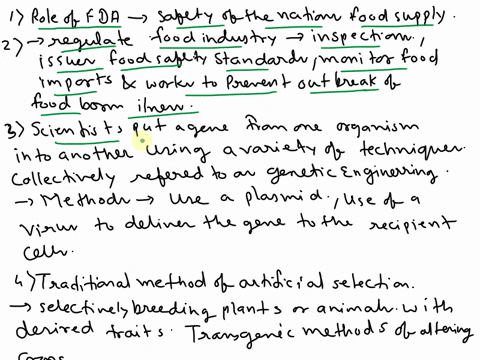 1) Role of FDA → safety of the nation food supply.
2) → regulate food industry → inspection,
issues food safety standards, monitor food
imports & works to prevent outbreak of
food born ilness.
3) Scientists put a gene from one organism
into another using a variety of techniques
collectively refered to as genetic Engineering.
→ Methods → Use a plasmid, Use of a
virus to deliver the gene to the recipient
cells.
4) Traditional method of artificial selection.
→ selectively breeding plants or animals with
desired traits. Transgenic methods of altering